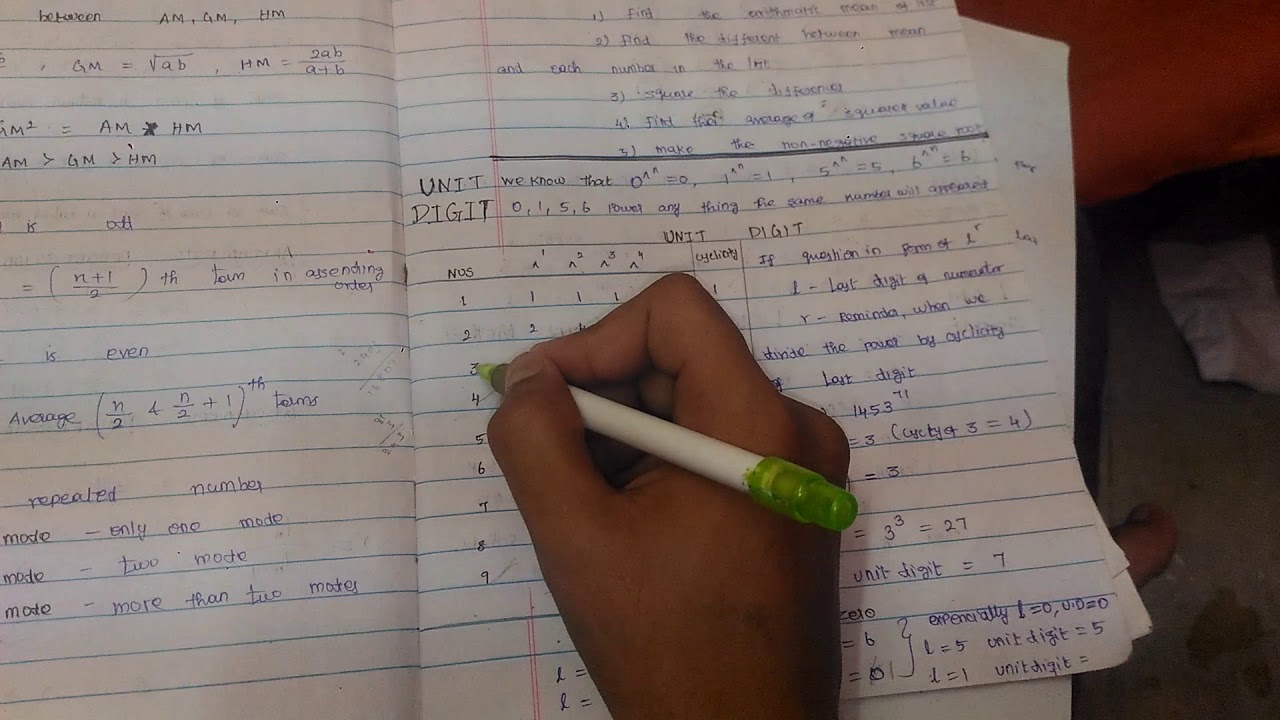 between AM, GM, HM
, GM = √ab , HM = 2ab/a+b
GM² = AM * HM
AM > GM > HM
is odd
= (n+1/2)th term in assending
order
is even
Average (n/2 & n/2 + 1)th terms
repeated number
mode - only one mode
mode - two mode
mode - more than two modes
1) Find the arithmatic mean of
2) Find the different between mean
and each number in the list
3) square the differences
4) Find average of square value
5) make the non-negative square root
UNIT DIGIT
we know that 0^n = 0, 1^n = 1, 5^n = 5, 6^n = 6
0, 1, 5, 6 power any thing the same number will appeared
UNIT DIGIT
NOS ^1 ^2 ^3 ^4 cyclicity
1 1 1 1 1
2 2
3
4
5
6
7
8
9
If question in form of l^r
l - Last digit of numeator
r - Reminder, when we
divide the power by cyclicity
Last digit
1453^71
= 3 (cyclty of 3 = 4)
= 3
= 3³ = 27
unit digit = 7
zero
= 6
l =
l =
l=0, U.D=0
l = 5 unit digit = 5
l = 1 unit digit =